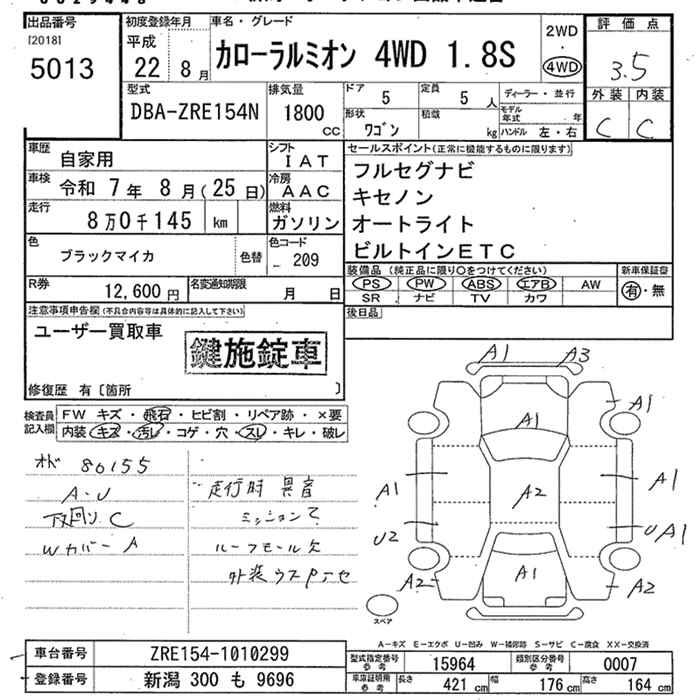 出品番号
[2018]
5013
初度登録年月
平成
22 8月
車名・グレード
カローラルミオン 4WD 1.8S
2WD
・
4WD
評価点
3.5
外装 内装
C C
型式
DBA-ZRE154N
排気量
1800
CC
ドア 5
定員 5 人
形状 ワゴン
積載 kg
ディーラー・並行
モデル年式 年
ハンドル 左・右
車歴 自家用
シフト IAT
車検 令和 7年 8月(25日)
冷房 AAC
走行 8万0千145 km
燃料 ガソリン
色 ブラックマイカ 色替
色コード 209
R券 12,600円
名変通知期限 月 日
セールスポイント(正常に機能するものに限ります)
フルセグナビ
キセノン
オートライト
ビルトインETC
装備品(純正品に限り○をつけてください)
新車保証書
PS PW ABS エアB AW
SR ナビ TV カワ
有・無
後日品
注意事項申告欄(不具合内容等は具体的に記入して下さい)
ユーザー買取車
鍵施錠車
修復歴 有〔箇所 〕
検査員記入欄
FW キズ・飛石・ヒビ割・リペア跡・×要
内装・キズ・汚レ・コゲ・穴・スレ・キレ・破レ
オド 80155
A-U
下回り C
Wカバー A
走行時 異音
ミッション?
ルーフモール欠
外装ウスP,セ
A1 A3
A1
A1
A1 A2 A1
U2 U A1
A2 A1 A2
スペア
A-キズ E-エクボ U-凹み W-補修跡 S-サビ C-腐食 XX-交換済
車台番号 ZRE154-1010299
登録番号 新潟 300 も 9696
型式指定番号 参考 15964
類別区分番号 参考 0007
車庫証明用 参考
長さ 421 cm
幅 176 cm
高さ 164 cm